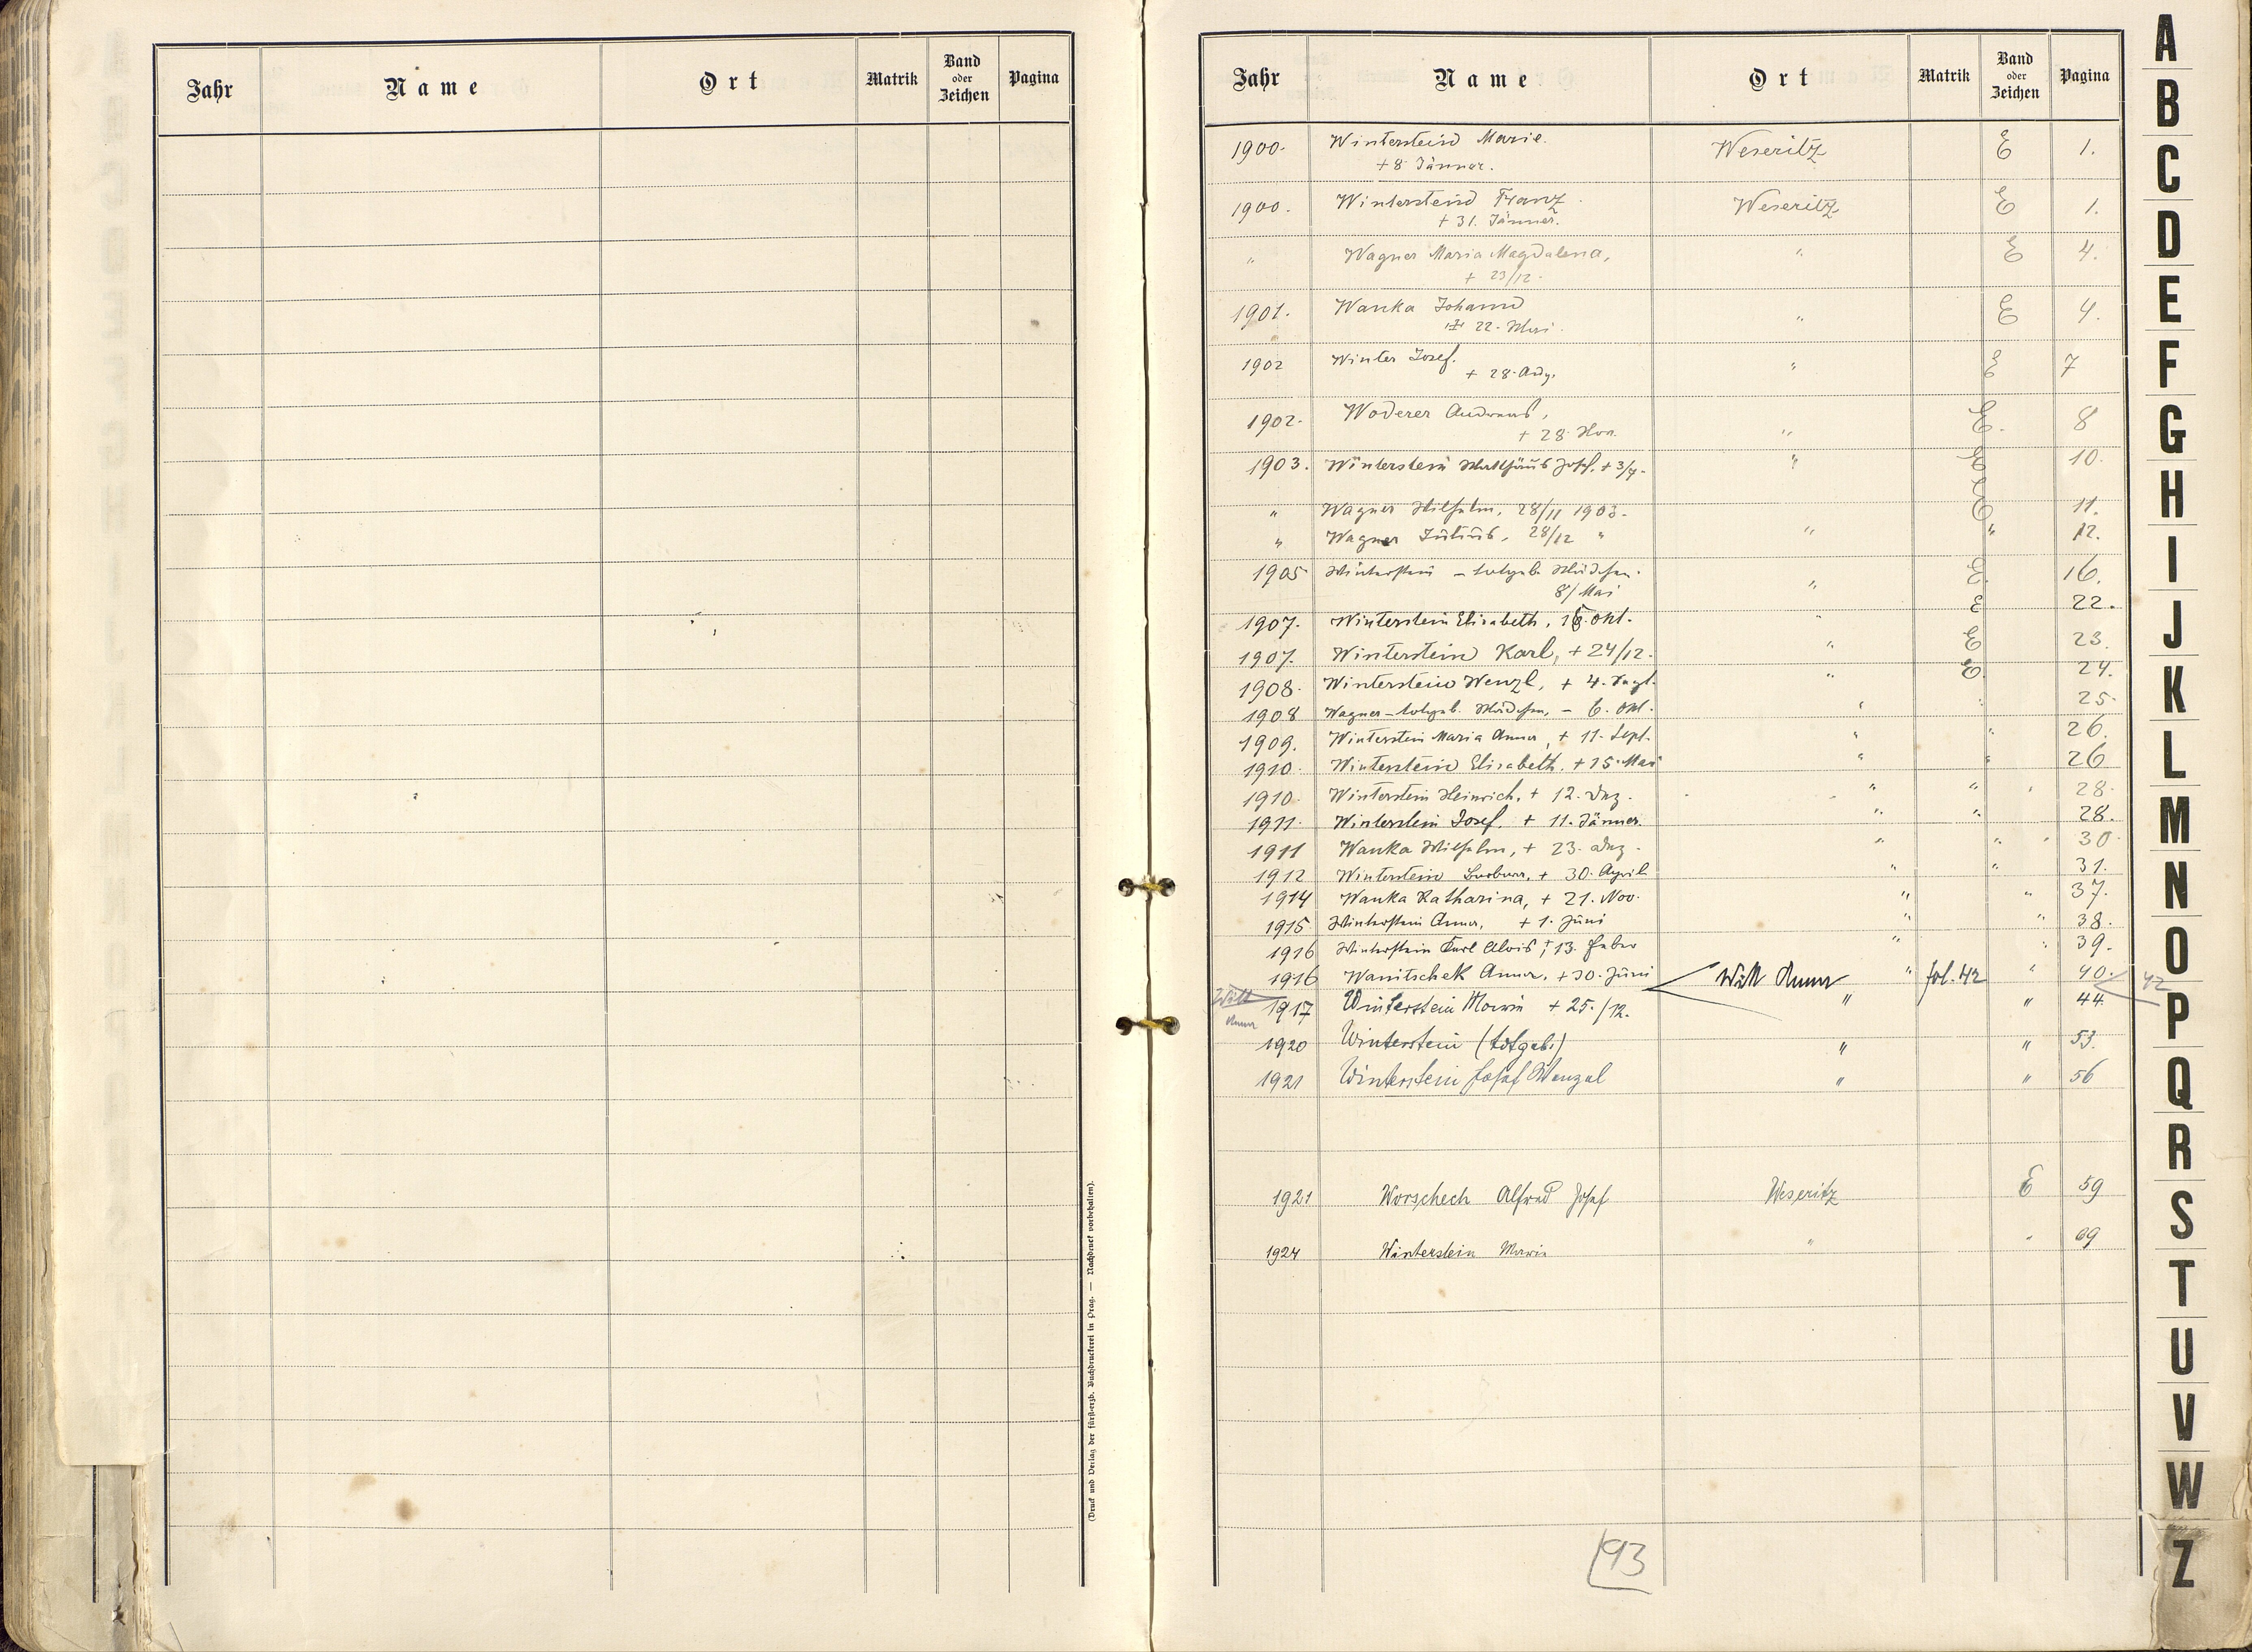 Jahr Name Ort Matrik Band oder Zeichen Pagina
(Druck und Verlag der fürst-erzb. Buchdruckerei in Prag. — Nachdruck vorbehalten).
Jahr Name Ort Matrik Band oder Zeichen Pagina
1900. Winterstein Marie. Weseritz E 1.
+ 8 Jänner.
1900. Winterstein Franz Weseritz E 1.
+ 31. Jänner.
" Wagner Maria Magdalena, " E 4.
+ 23/12.
1901. Wanka Johann " E 4.
22. Mai
1902 Winter Josef. " E 7
+ 28. Aug.
1902. Woderer Andreas, " E. 8
+ 28. Nov.
1903. Winterstein Matthäus Josef. + 3/7. " E 10.
" Wagner Wilhelm, 28/11 1903. E 11.
" Wagner Julius, 28/12 " " " 12.
1905 Winterstein – totgeb. Mädchen. " E. 16.
8/Mai
1907. Winterstein Elisabeth, Okt. " E 22.
1907. Winterstein Karl, + 24/12. " E 23.
1908. Winterstein Wenzl, + 4. Sept. " E. 24.
1908 Wagner – totgeb. Mädchen, – 6. Okt. " " 25.
1909. Winterstein Maria Anna, + 11. Sept. " " 26.
1910. Winterstein Elisabeth. + 15. Mai " " 26
1910. Winterstein Heinrich, + 12. Dez. " " " 28.
1911. Winterstein Josef, + 11. Jänner. " " 28.
1911 Wanka Wilhelm, + 23. Dez. " " " 30.
1912 Winterstein Barbara, + 30. April " " 31.
1914 Wanka Katharina, + 21. Nov. " " 37.
1915 Winterstein Anna, + 1. Juni " " 38.
1916 Winterstein Karl Alois, + 13. Feber " " 39.
1916 Wanitschek Anna, + 30. Juni Witt Anna " fol. 42 " 40. 42
Witt Anna
1917 Winterstein Maria + 25./12. " " 44.
1920 Winterstein (totgeb.) " " 53.
1921 Winterstein Josef Wenzel " " 56
1921 Worschech Alfred Josef Weseritz E 59
1924 Winterstein Maria " " 69
93
A
B
C
D
E
F
G
H
I
J
K
L
M
N
O
P
Q
R
S
T
U
V
W
Z